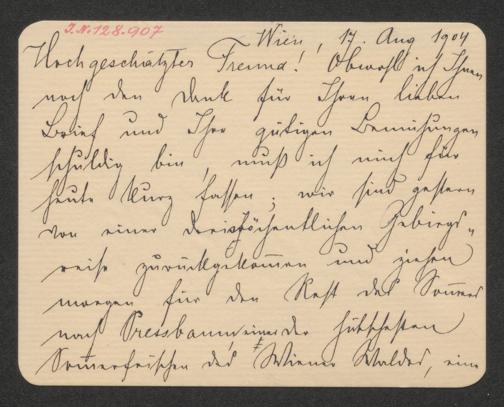 I.N. 128.907
Wien, 17. Aug 1904
Hochgeschätzter Freund! Obwohl ich Ihnen
noch den Dank für Ihren lieben
Brief und Ihre gütigen Bemühungen
schuldig bin, muß ich mich für
heute kurz fassen; wir sind gestern
von einer dreiwöchentlichen Gebirgs-
reise zurückgekommen und ziehen
morgen für den Rest des Sommers
nach Pressbaum, einer der hübschesten
Sommerfrischen des Wiener Waldes, eine